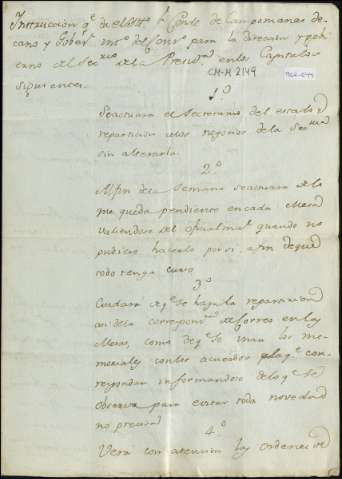 Instruccion q.e da el Ill.mo S.r Conde de Campomanes de
cano y Gover.r int.o del Cons.o para la direccion y gobi
erno de la Secr.ria de la Presid.a en los Capitulos
siguientes
CM-M 2149
1.º
Se actuara el Secretario del estado y
reparticion de los negocios de la Secr.ria
sin alterarla.
2.º
Al fin de la Semana se actuara de lo
que queda pendiente en cada Mesa
valiendose del oficial may.r quando no
pudiere hacerlo por si, a fin de que
todo tenga curso
3.º
Cuidara de q.e se haga la reparticion
de correos en las
Mesas, como de q.e se unan los me
moriales con los acuerdos
respondan informandose de lo q.e se
observa para evitar toda novedad
no precisa
4.º
Vera con atencion las ordenes de